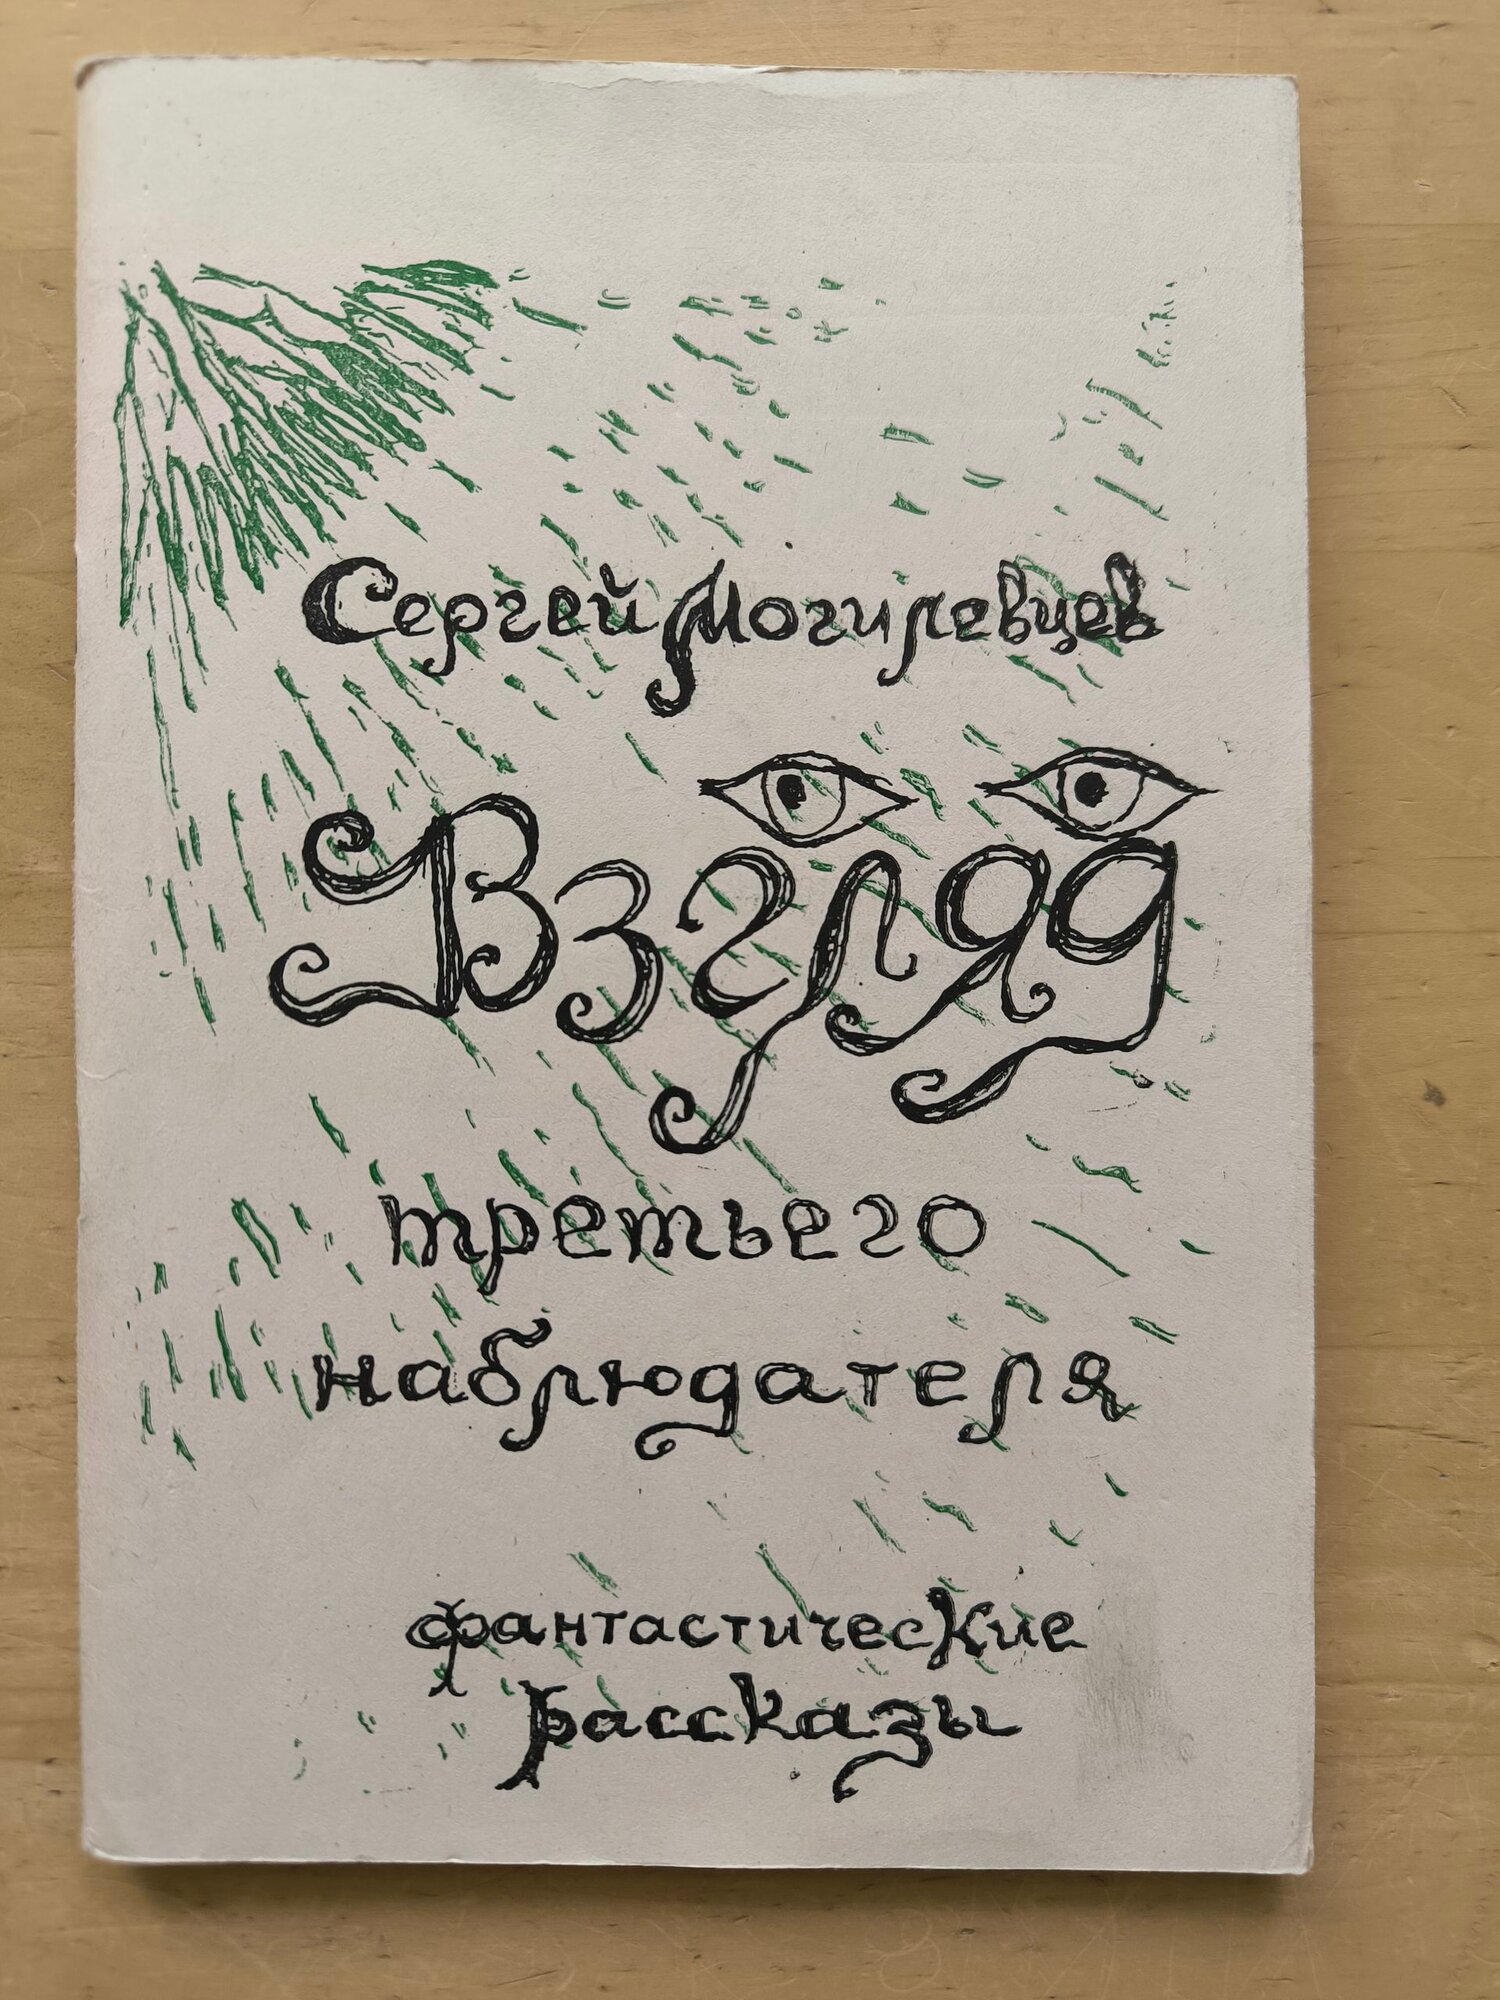 Сергей Могилевцев
Взгляд
третьего
наблюдателя
фантастические
рассказы